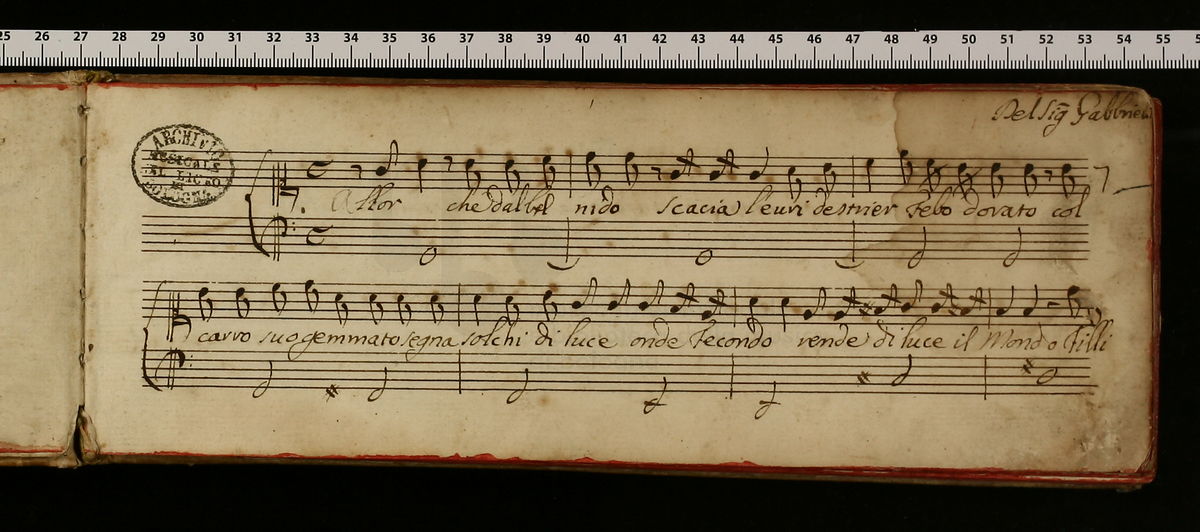 25 26 27 28 29 30 31 32 33 34 35 36 37 38 39 40 41 42 43 44 45 46 47 48 49 50 51 52 53 54 55
Del Sig̃ Gabbrieli
ARCHIVIO
MUSICALE
AL LICEO
DI
BOLOGNA
Allor che dal bel nido scacia l'euri destrier Febo dorato col
carro suo gemmato segna solchi di luce onde fecondo rende di luce il Mondo Filli